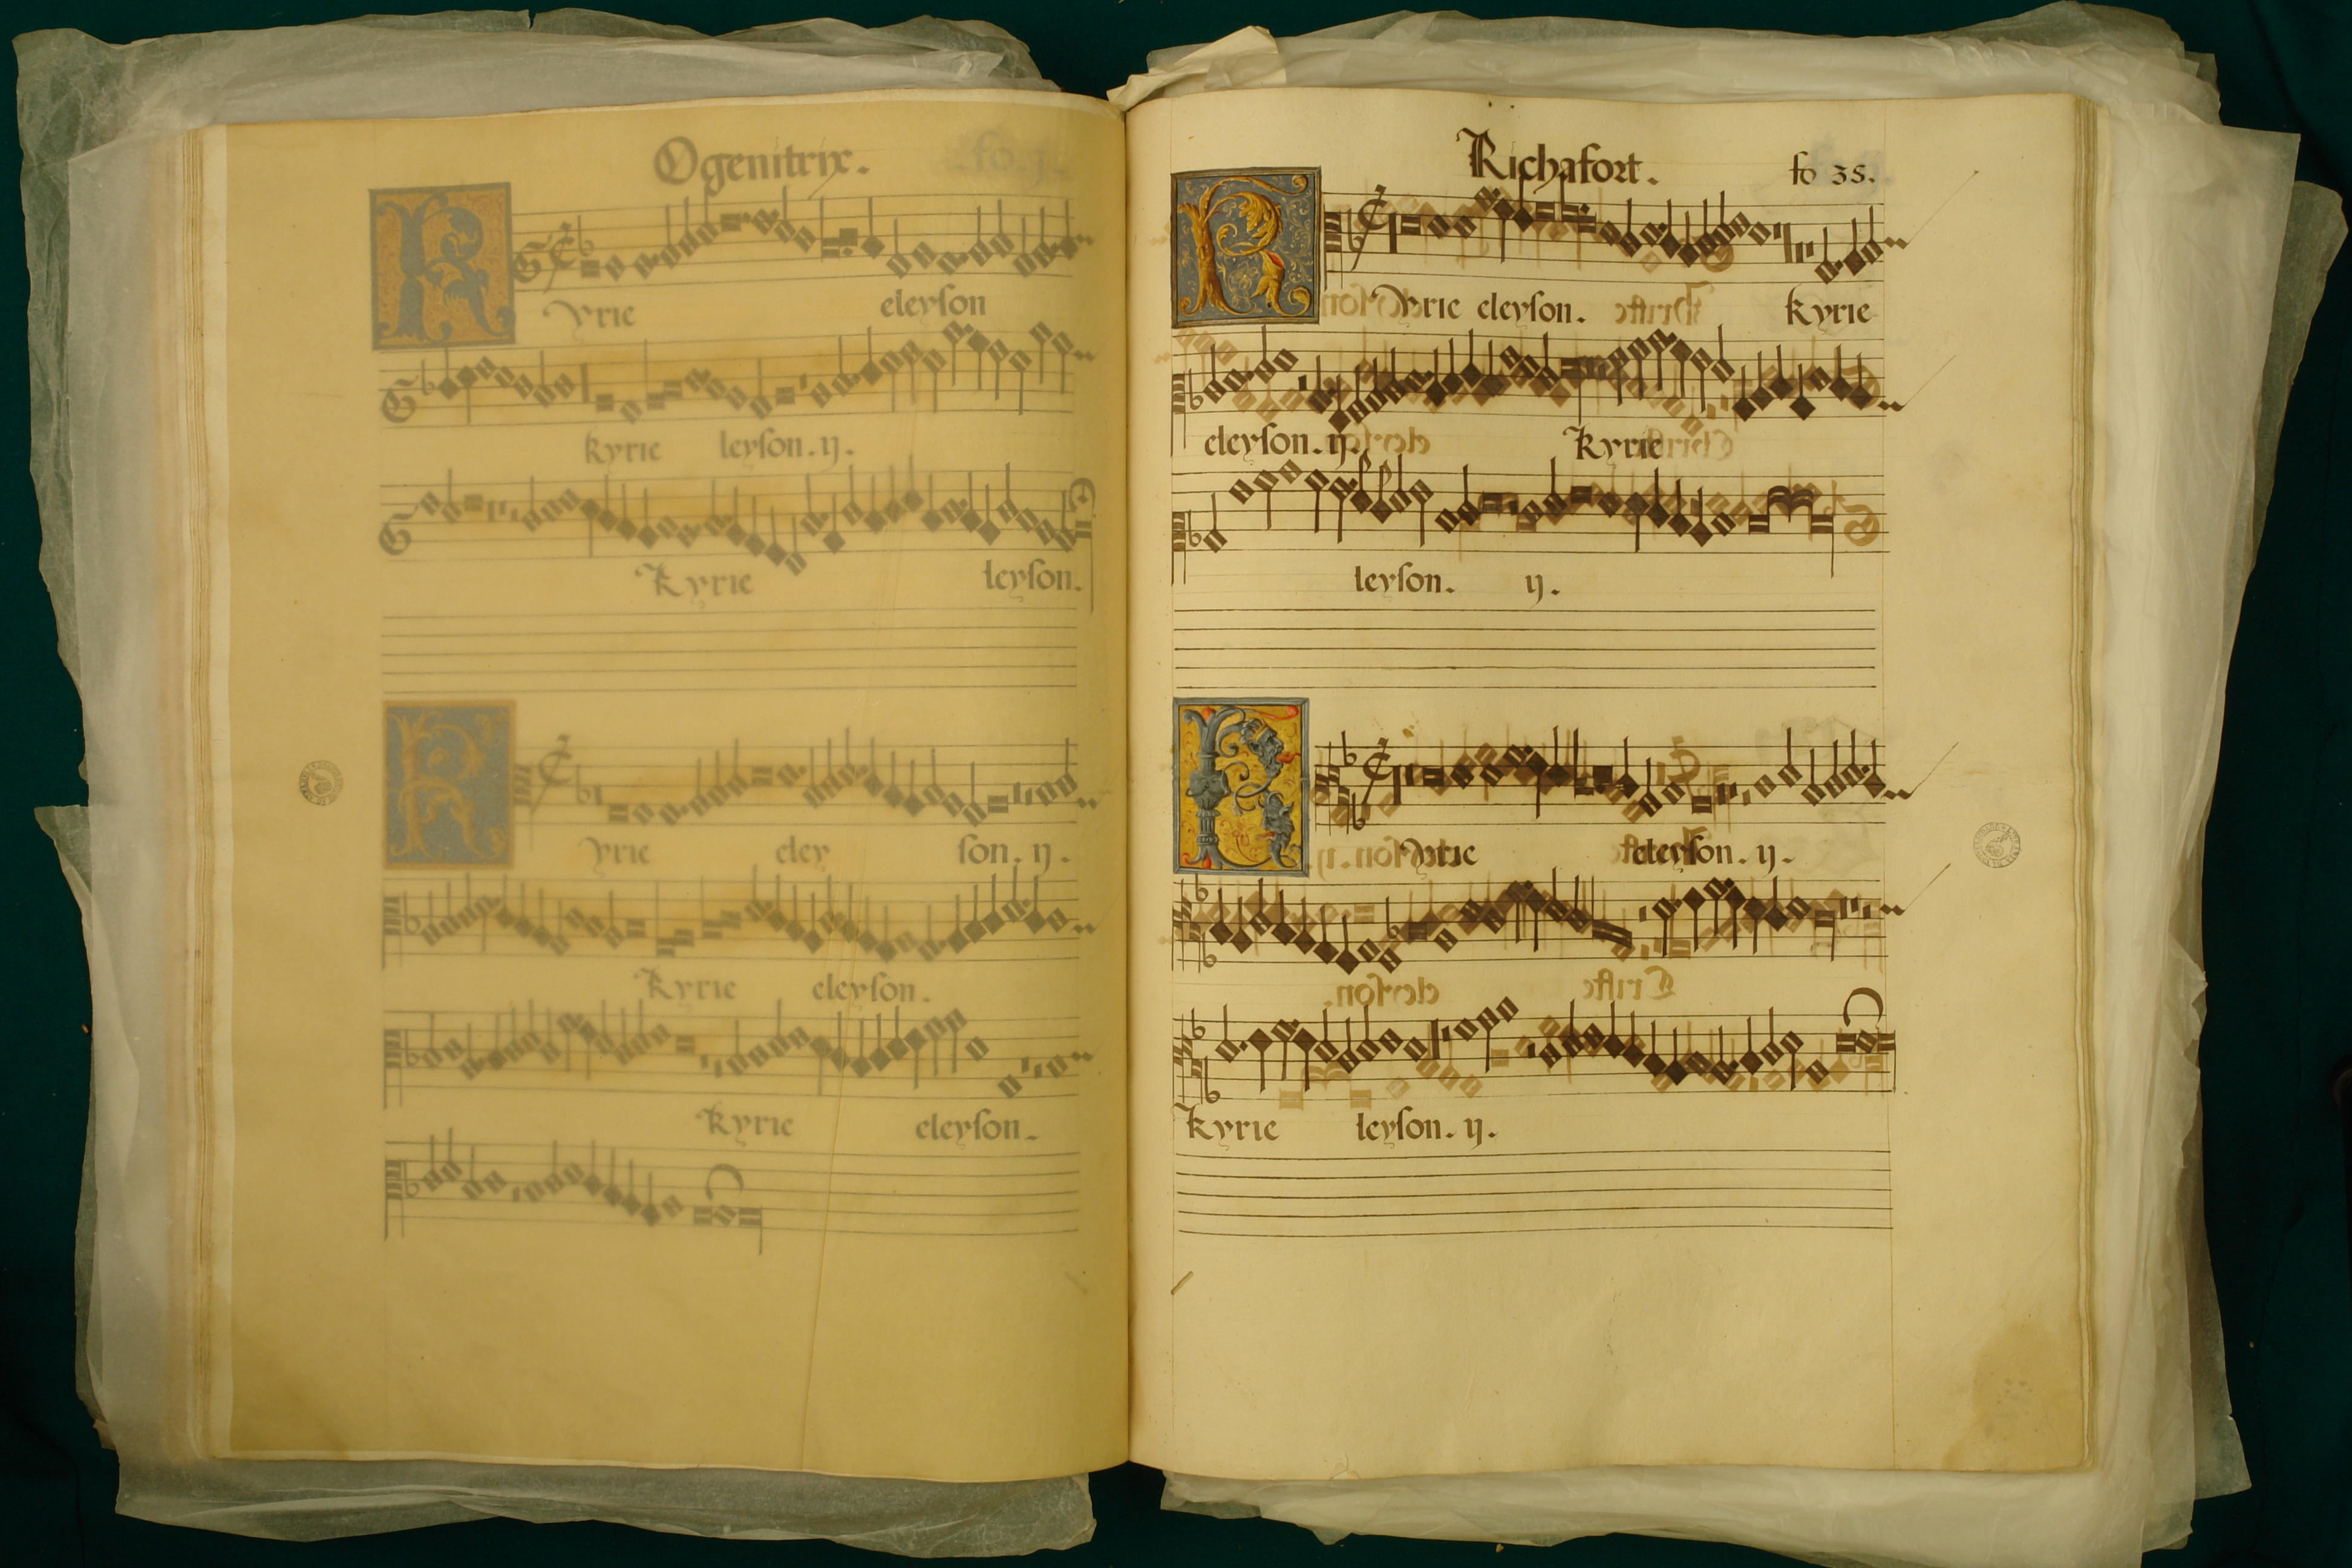 Ogenitrix.
K yrie eleyson
kyrie leyson. ij.
Kyrie leyson.
K yrie eley son. ij.
Kyrie eleyson.
Kyrie eleyson.
Richafort. fo 35.
K yrie eleyson. kyrie
eleyson. ij. Kyrie
leyson. ij.
K yrie eleyson. ij.
Kyrie leyson. ij.